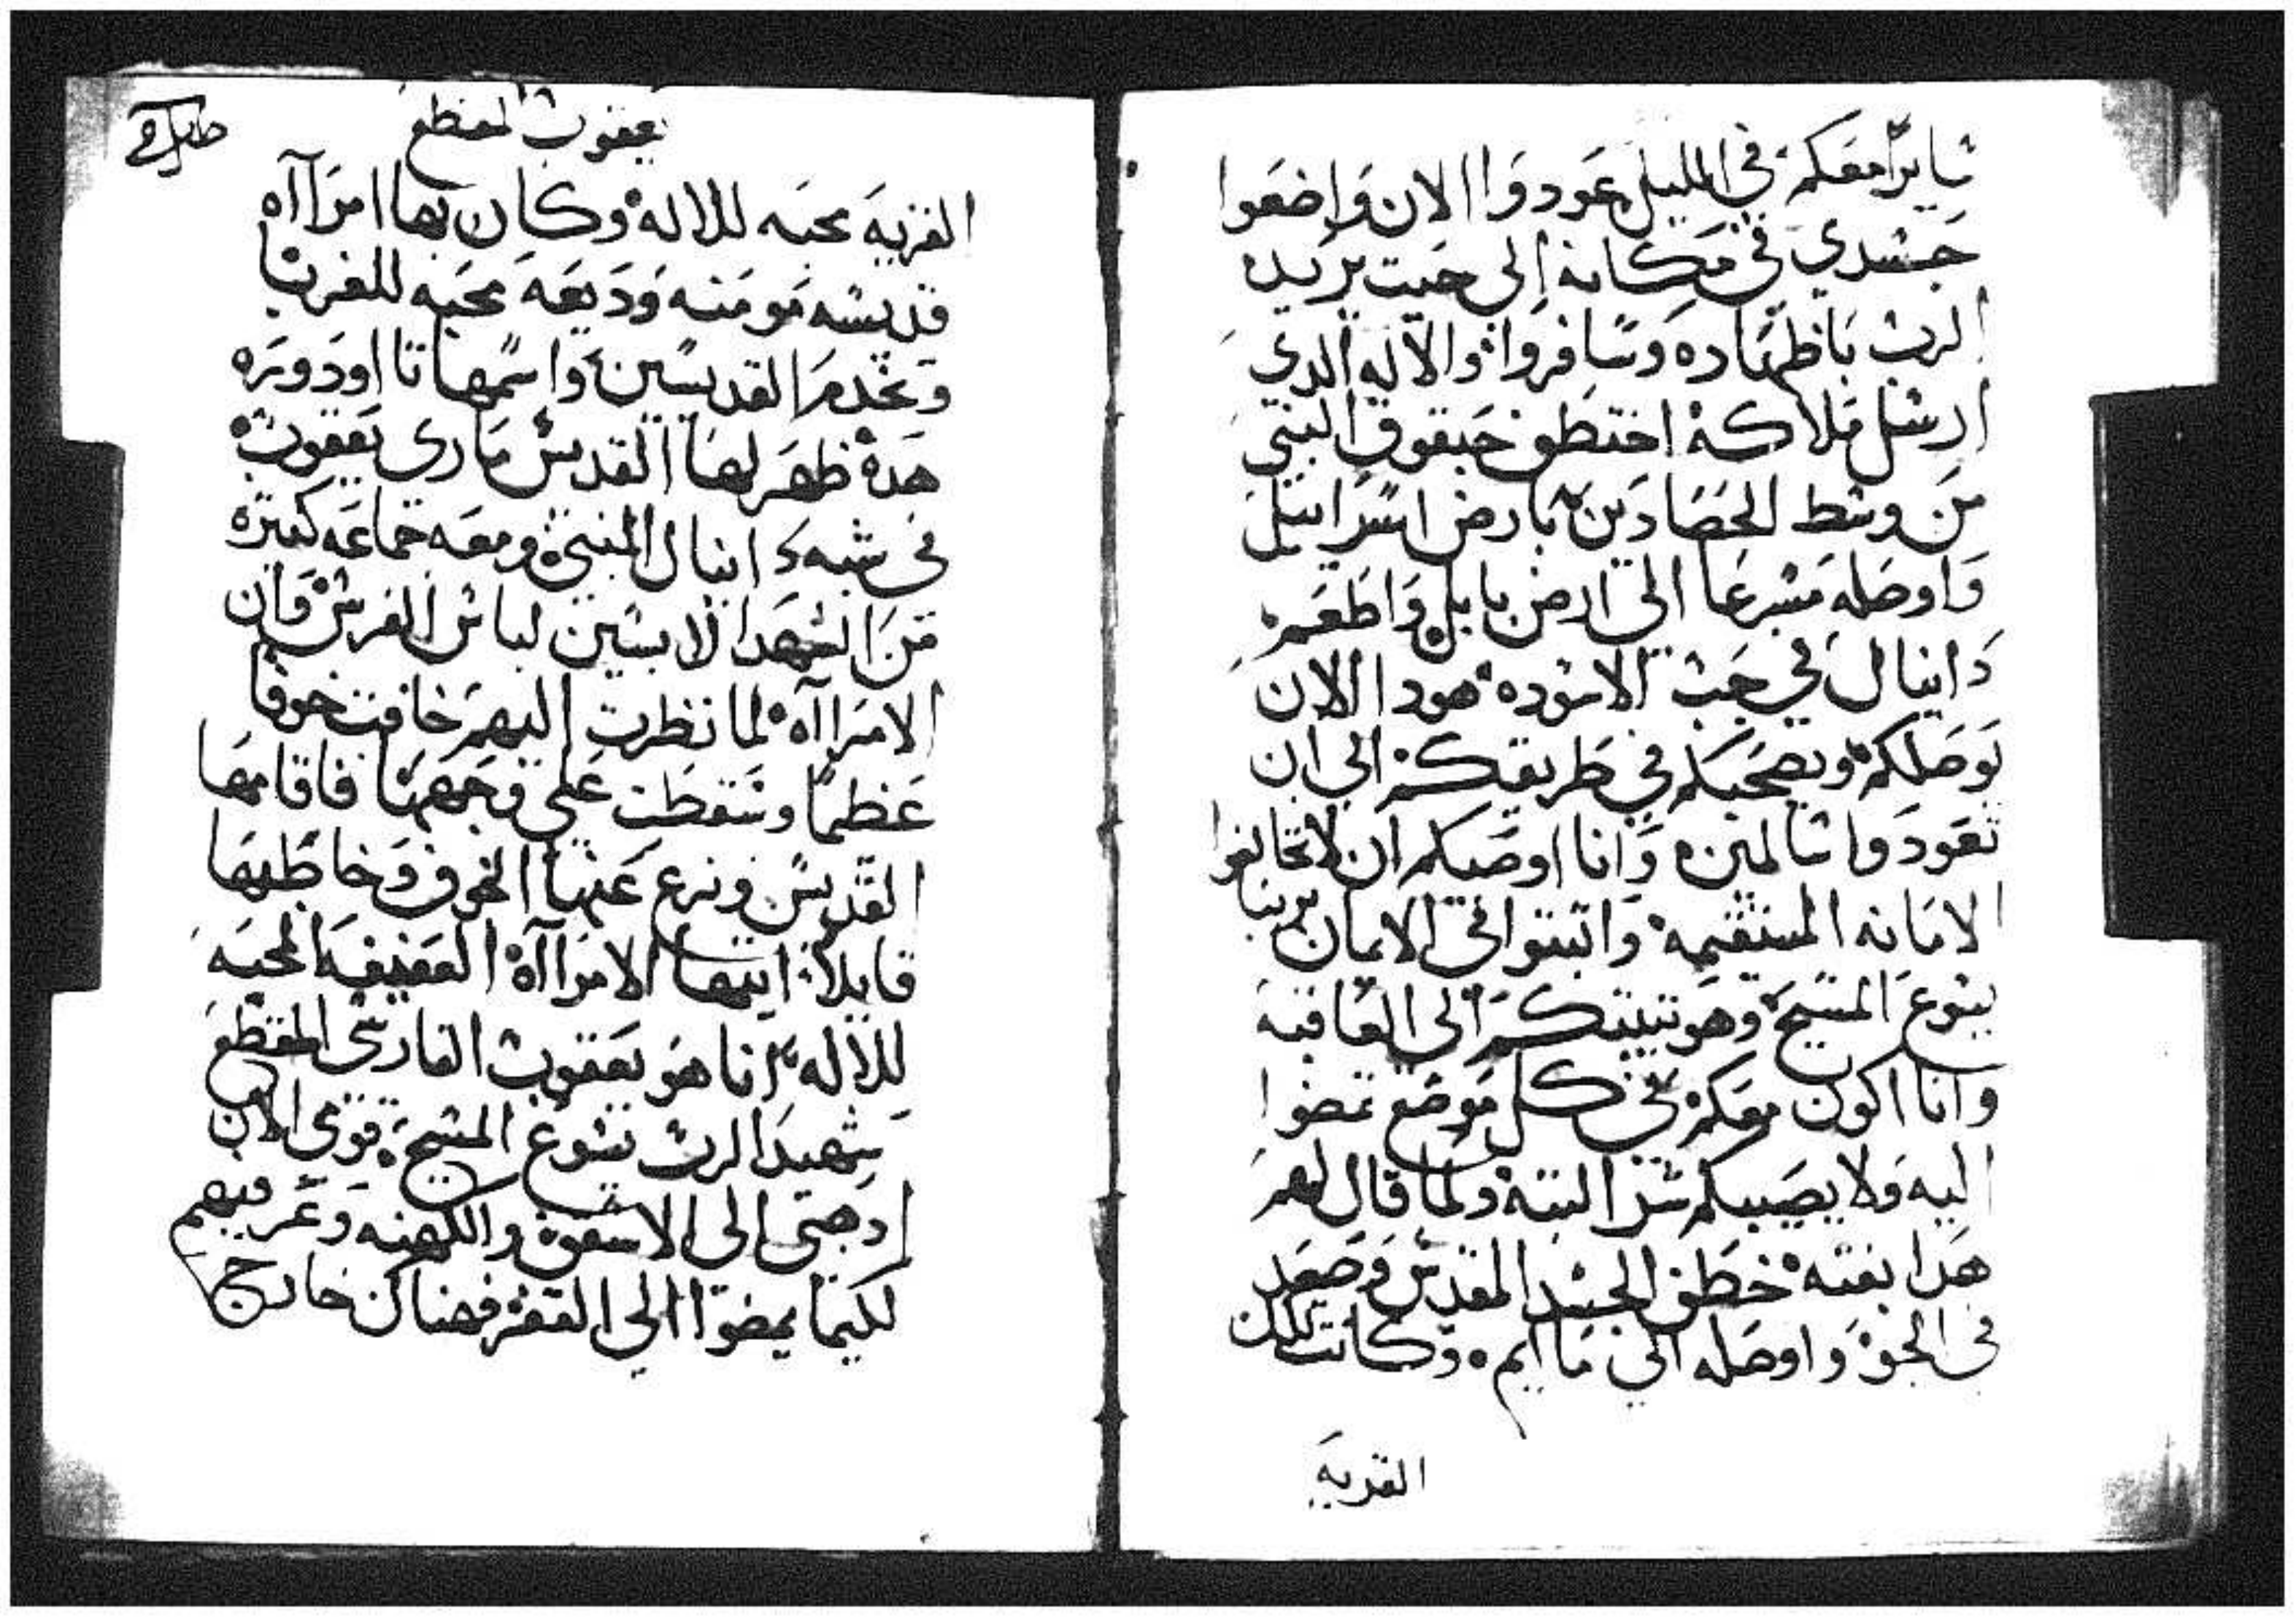 سايرا معكم في الليل عودوا الان واضعوا
جسدي في مكانه الي حيت يريد
الرب باظهاره وسافروا والاله الدي
ارسل ملاكه اختطف حبقوق النبي
من وسط الحصادين بارض اسراييل
واوصله مسرعا الي ارض بابل واطعم
دانيال في جب الاسوده هودا الان
يوصلكم ويصحبكم في طريقكم الي ان
تعودوا سالمين وانا اوصيكم ان لا تخالفوا
الامانه المستقيمه واتبتوا في الايمان بربنا
يسوع المسيح وهو يتبتكم الي العاقبه
وانا اكون معكم في كل موضع تمضوا
اليه ولا يصيبكم شر البته ولما قال لهم
هدا بغته خطف الجسد المقدس وصعد
في الجو واوصله الي ما ايم وكانت تلك
القريه
يعقوب المقطع
القريه محبه للاله وكان بها امراآه
قديسه مومنه وديعه محبه للغربا
وتخدم القديسين واسمها تااودوره
هده ظهر لها القديس ماري يعقوب
في شبه دانيال النبي ومعه جماعه كتيره
من الشهدا لابسين لباس الفرس وان
الامراآه لما نظرت اليهم خافت خوفا
عظيما وسقطت علي وجهها فاقامها
القديس ونزع عنها الخوف وخاطبها
قايلا ايتها الامراآه العفيفه المحبه
للاله انا هو يعقوب الفارسي المقطع
شهيد الرب يسوع المسيح قومي الان
ادهبي الي الاسقف والكهنه وعرفيهم
لكيما يمضوا الي القفر فهناك خارج